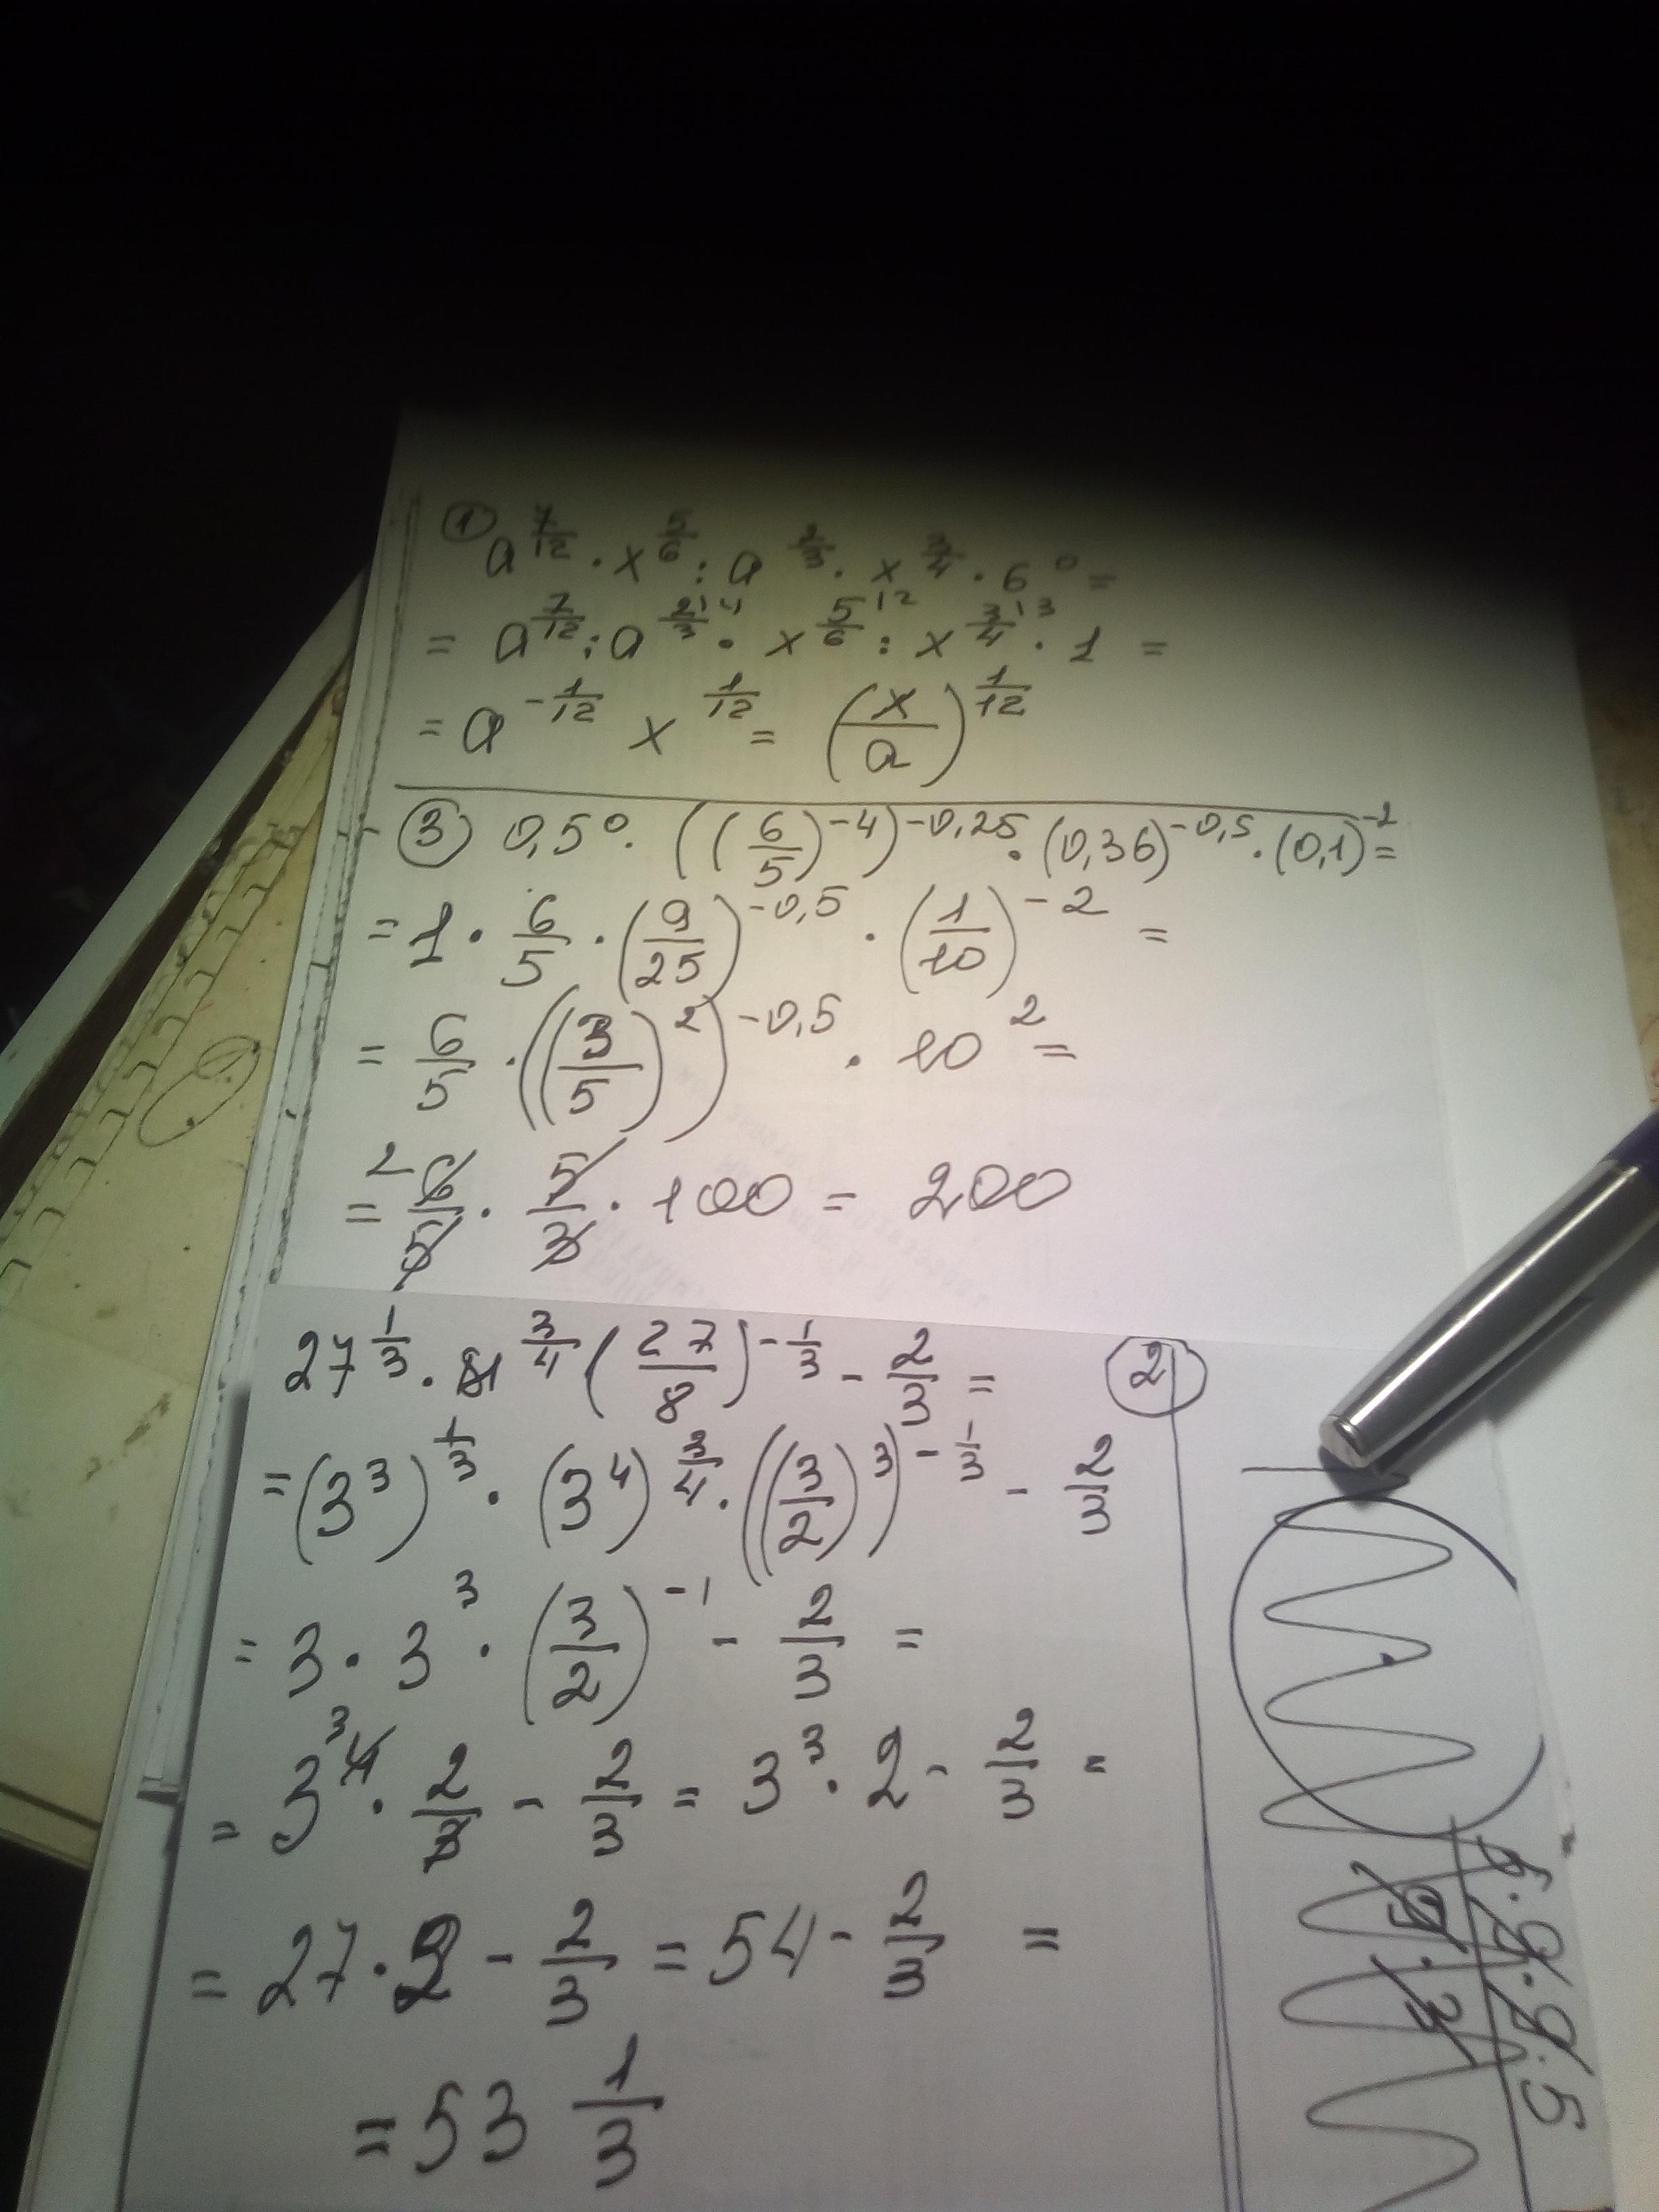 ① a^(7/12) · x^(5/6) : a^(2/3) · x^(3/4) · 6^0 =
= a^(7/12) : a^(2/3 |4) · x^(5/6 |2) : x^(3/4 |3) · 1 =
= a^(-1/12) x^(1/12) = (x/a)^(1/12)
③ 0,5^0 · ((6/5)^(-4))^(-0,25) · (0,36)^(-0,5) · (0,1)^(-2) =
= 1 · 6/5 · (9/25)^(-0,5) · (1/10)^(-2) =
= 6/5 · ((3/5)^2)^(-0,5) · 10^2 =
= 2 6/5 · 5/3 · 100 = 200
27^(1/3) · 81^(3/4) (27/8)^(-1/3) - 2/3 = ②
= (3^3)^(1/3) · (3^4)^(3/4) · ((3/2)^3)^(-1/3) - 2/3
= 3 · 3^3 · (3/2)^(-1) - 2/3 =
= 3^3 4 · 2/3 - 2/3 = 3^3 · 2 - 2/3 =
= 27 · 2 - 2/3 = 54 - 2/3 =
= 53 1/3